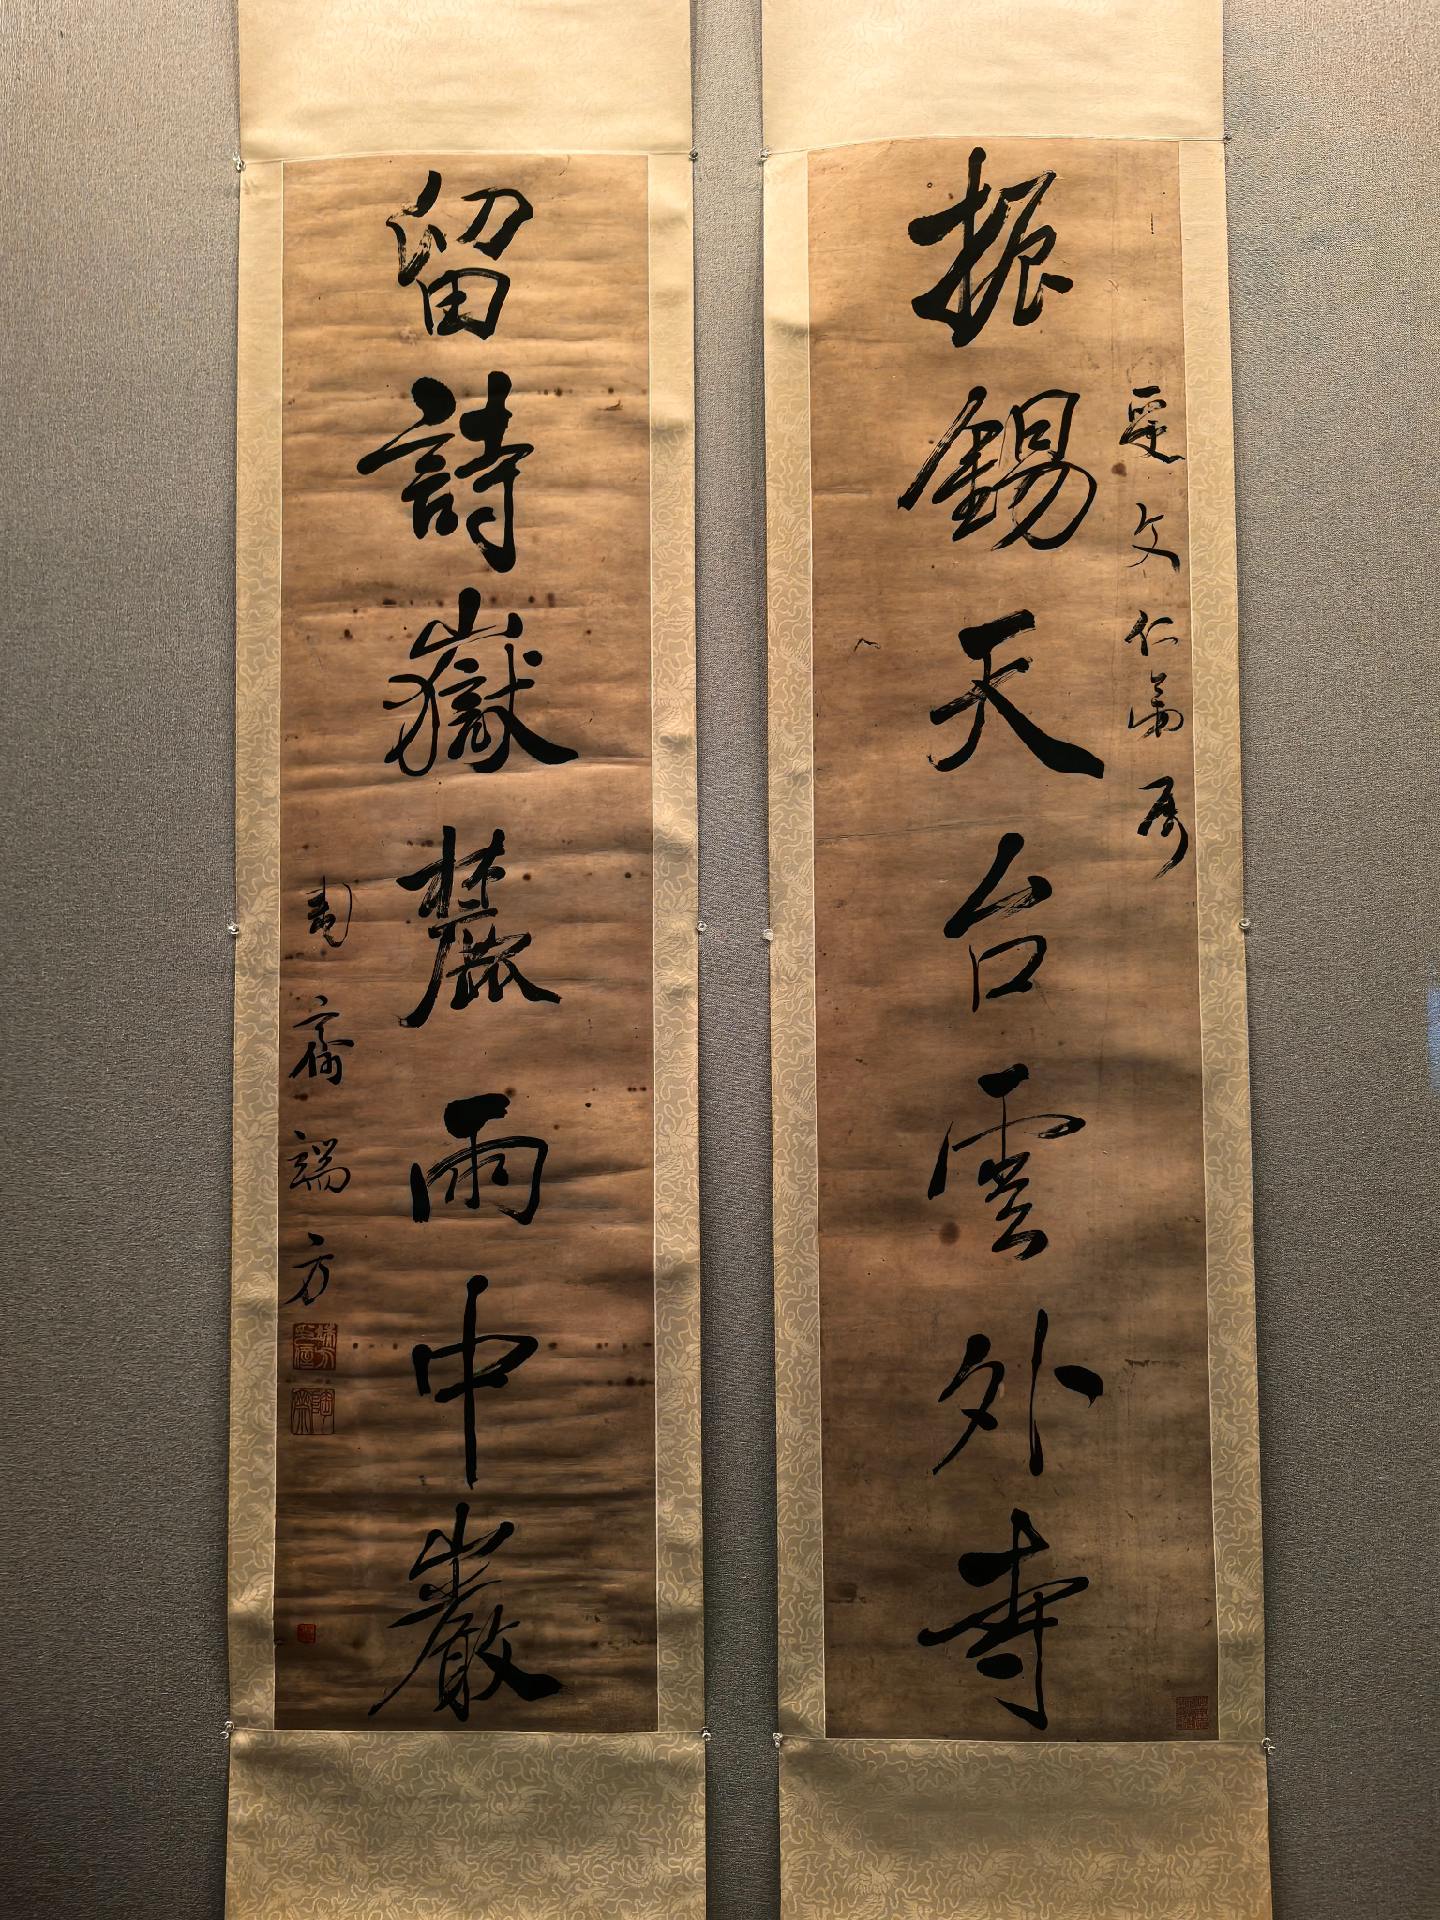 振錫天台雲外寺
文仁弟屬
留詩嶽麓雨中巖
匋齋端方